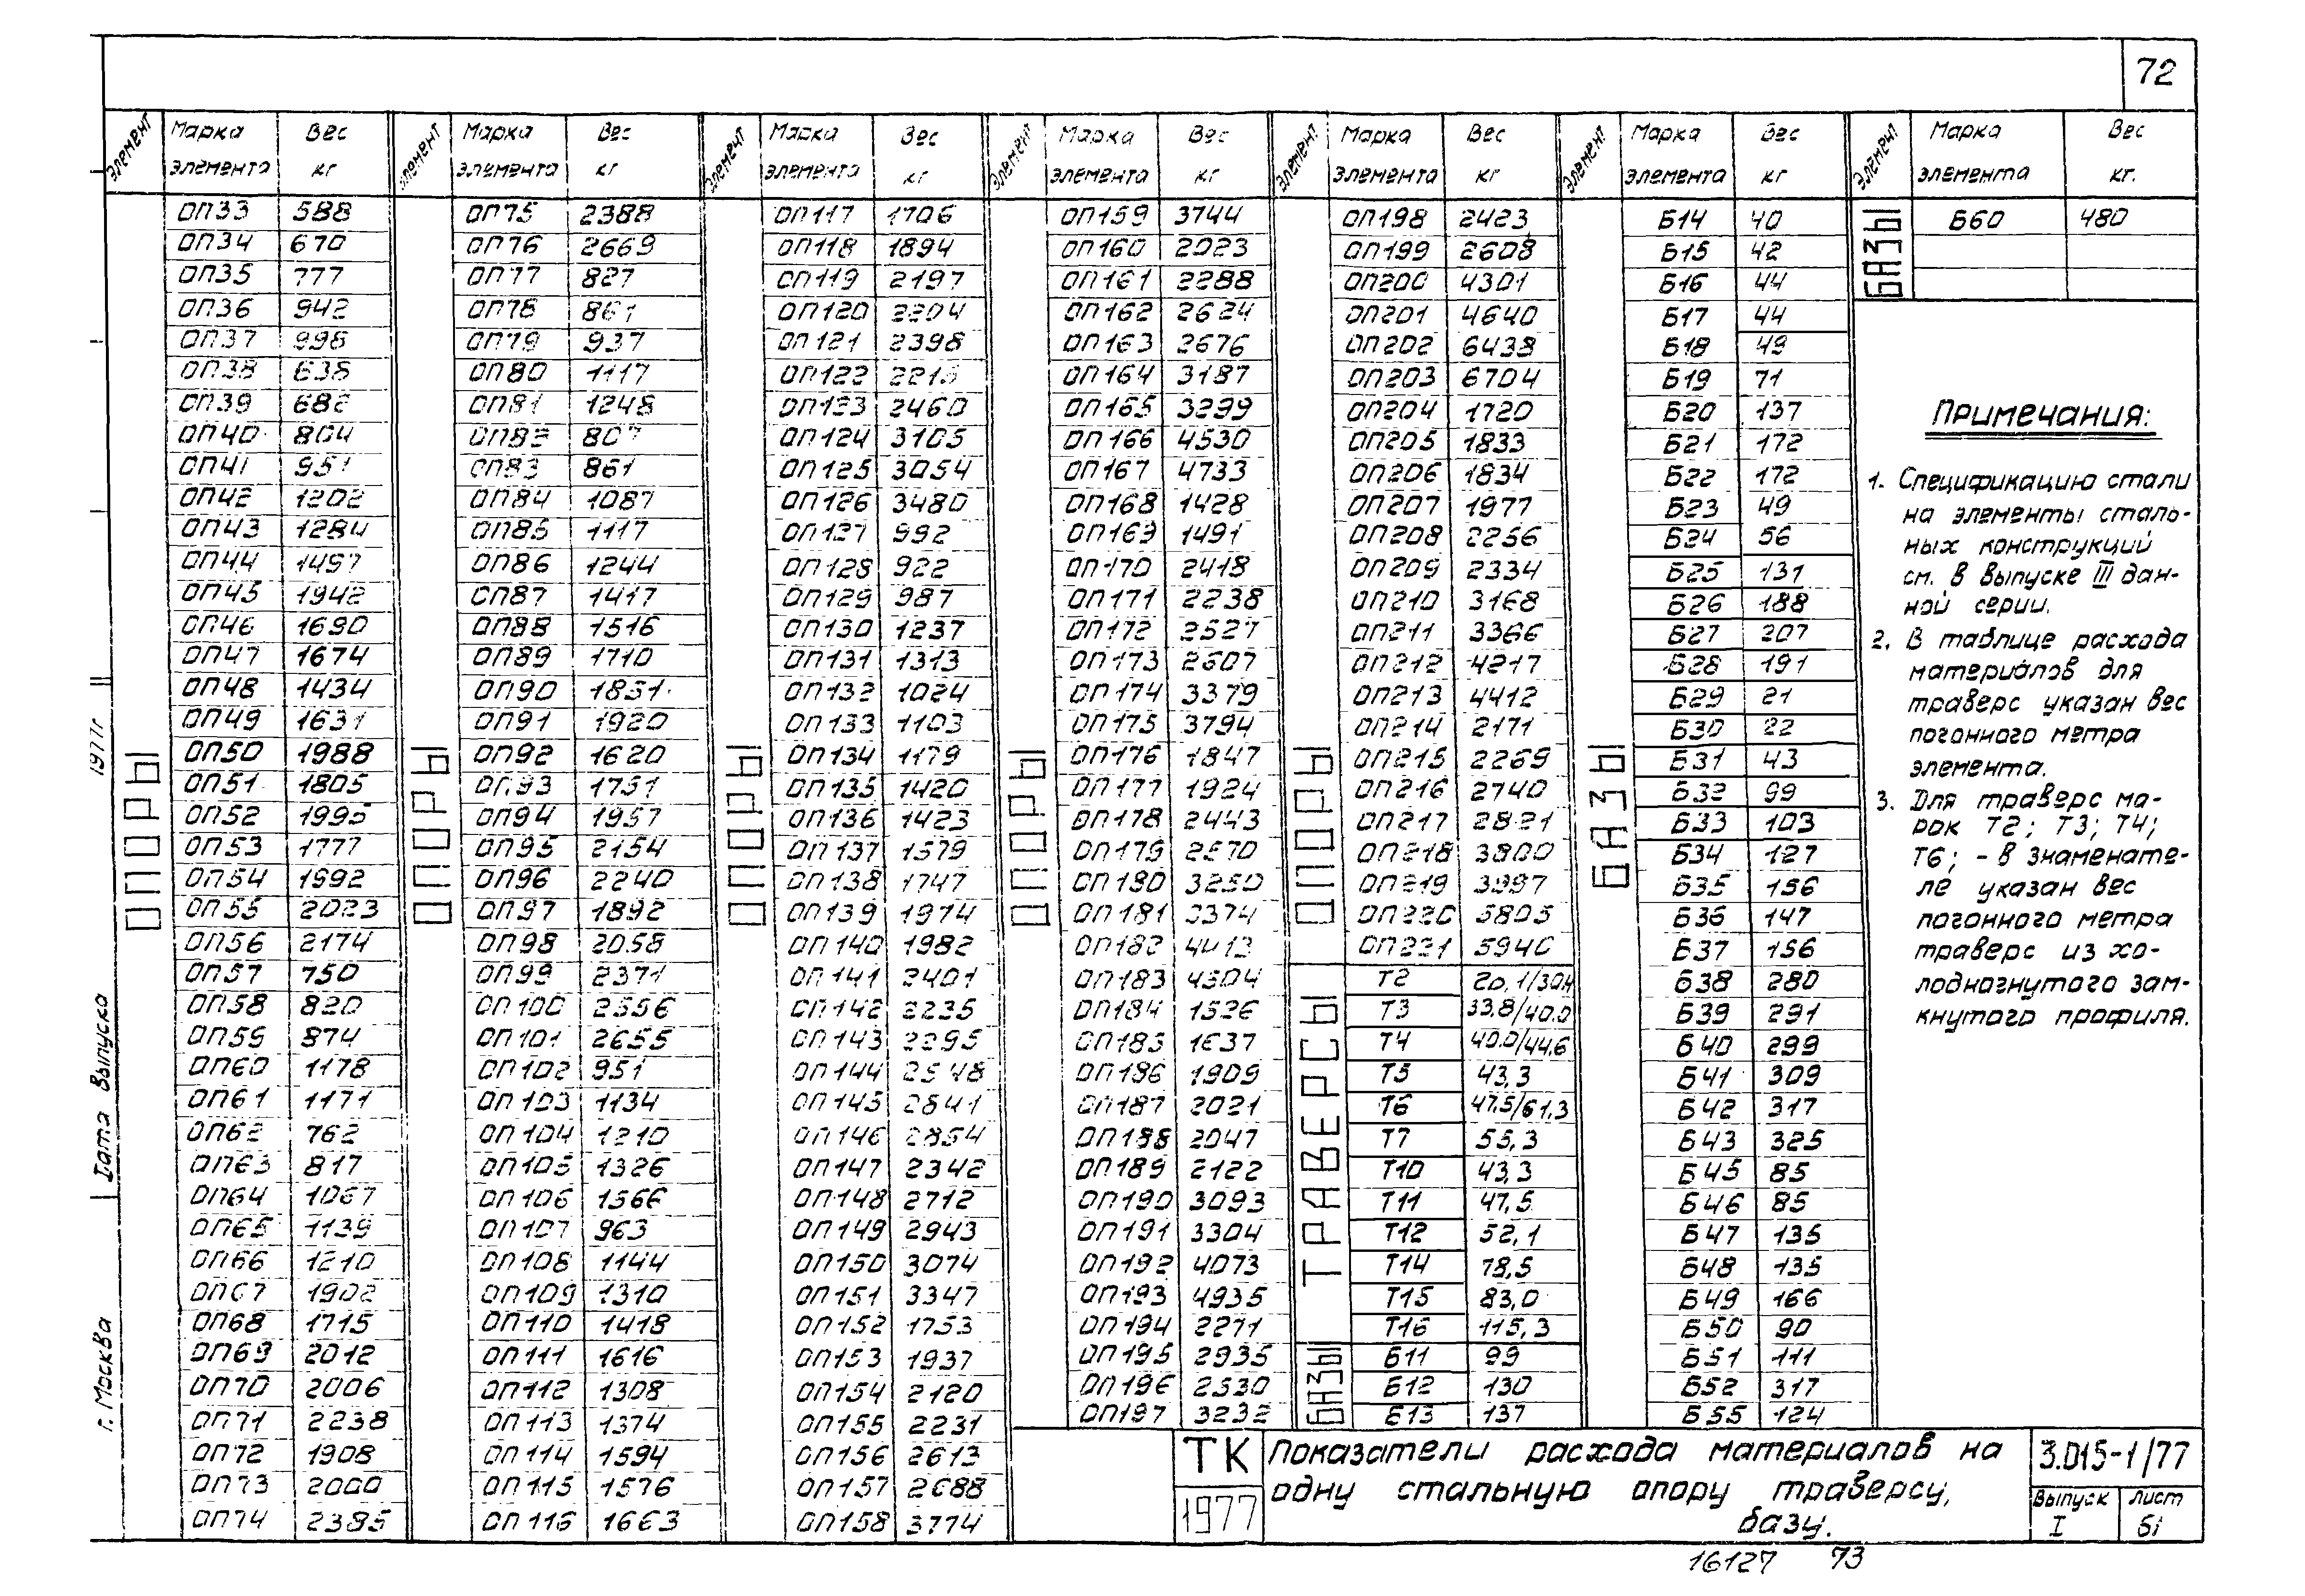 72
Элемент Марка элемента Вес кг
ОП33 588
ОП34 670
ОП35 777
ОП36 942
ОП37 996
ОП38 638
ОП39 682
ОП40 804
ОП41 951
ОП42 1202
ОП43 1284
ОП44 1497
ОП45 1942
ОП46 1690
ОП47 1674
ОП48 1434
ОП49 1631
ОП50 1988
ОП51 1805
ОП52 1995
ОП53 1777
ОП54 1992
ОП55 2023
ОП56 2174
ОП57 750
ОП58 820
ОП59 874
ОП60 1178
ОП61 1171
ОП62 762
ОП63 817
ОП64 1067
ОП65 1139
ОП66 1210
ОП67 1902
ОП68 1715
ОП69 2012
ОП70 2006
ОП71 2238
ОП72 1908
ОП73 2060
ОП74 2385
ОПОРЫ
Элемент Марка элемента Вес кг
ОП75 2388
ОП76 2669
ОП77 827
ОП78 861
ОП79 937
ОП80 1117
ОП81 1248
ОП82 807
ОП83 861
ОП84 1087
ОП85 1117
ОП86 1244
ОП87 1417
ОП88 1516
ОП89 1710
ОП90 1851
ОП91 1920
ОП92 1620
ОП93 1751
ОП94 1957
ОП95 2154
ОП96 2240
ОП97 1892
ОП98 2058
ОП99 2371
ОП100 2556
ОП101 2655
ОП102 951
ОП103 1134
ОП104 1210
ОП105 1326
ОП106 1566
ОП107 963
ОП108 1144
ОП109 1310
ОП110 1418
ОП111 1616
ОП112 1308
ОП113 1374
ОП114 1594
ОП115 1576
ОП116 1663
ОПОРЫ
Элемент Марка элемента Вес кг
ОП117 1706
ОП118 1894
ОП119 2197
ОП120 2204
ОП121 2398
ОП122
ОП123 2460
ОП124 3105
ОП125 3054
ОП126 3480
ОП127 992
ОП128 922
ОП129 987
ОП130 1237
ОП131 1313
ОП132 1024
ОП133 1103
ОП134 1179
ОП135 1420
ОП136 1423
ОП137 1579
ОП138 1747
ОП139 1974
ОП140 1982
ОП141 2401
ОП142 2235
ОП143 2295
ОП144 2548
ОП145 2841
ОП146 2854
ОП147 2342
ОП148 2712
ОП149 2943
ОП150 3074
ОП151 3347
ОП152 1753
ОП153 1937
ОП154 2120
ОП155 2231
ОП156 2613
ОП157 2688
ОП158 3774
ОПОРЫ
Элемент Марка элемента Вес кг
ОП159 3744
ОП160 2023
ОП161 2288
ОП162 2624
ОП163 2676
ОП164 3187
ОП165 3299
ОП166 4530
ОП167 4733
ОП168 1428
ОП169 1491
ОП170 2418
ОП171 2238
ОП172 2527
ОП173 2607
ОП174 3379
ОП175 3794
ОП176 1847
ОП177 1924
ОП178 2443
ОП179 2570
ОП180 3250
ОП181 3374
ОП182 4413
ОП183 4504
ОП184 1526
ОП185 1637
ОП186 1909
ОП187 2021
ОП188 2047
ОП189 2122
ОП190 3093
ОП191 3304
ОП192 4073
ОП193 4935
ОП194 2271
ОП195 2935
ОП196 2530
ОП197 3232
ОПОРЫ
Элемент Марка элемента Вес кг
ОП198 2423
ОП199 2608
ОП200 4301
ОП201 4640
ОП202 6438
ОП203 6704
ОП204 1720
ОП205 1833
ОП206 1834
ОП207 1977
ОП208 2256
ОП209 2334
ОП210 3168
ОП211 3366
ОП212 4217
ОП213 4412
ОП214 2171
ОП215 2269
ОП216 2740
ОП217 2821
ОП218 3800
ОП219 3997
ОП220 5805
ОП221 5940
ОПОРЫ
Т2 20,1/30,4
Т3 33,8/40.0
Т4 40.0/44,6
Т5 43,3
Т6 47,5/61,3
Т7 55,3
Т10 43,3
Т11 47,5
Т12 52,1
Т14 78,5
Т15 83,0
Т16 115,3
ТРАВЕРСЫ
Б11 99
Б12 130
Б13 137
БАЗЫ
Элемент Марка элемента Вес кг
Б14 40
Б15 42
Б16 44
Б17 44
Б18 49
Б19 71
Б20 137
Б21 172
Б22 172
Б23 49
Б24 56
Б25 131
Б26 188
Б27 207
Б28 191
Б29 21
Б30 22
Б31 43
Б32 99
Б33 103
Б34 127
Б35 156
Б36 147
Б37 156
Б38 280
Б39 291
Б40 299
Б41 309
Б42 317
Б43 325
Б45 85
Б46 85
Б47 135
Б48 135
Б49 166
Б50 90
Б51 111
Б52 317
Б55 124
БАЗЫ
Элемент Марка элемента Вес кг.
Б60 480
БАЗЫ
Примечания:
1. Спецификацию стали
на элементы сталь-
ных конструкций
см. в выпуске III дан-
ной серии.
2. В таблице расхода
материалов для
траверс указан вес
погонного метра
элемента.
3. Для траверс ма-
рок Т2; Т3; Т4;
Т6; - в знаменате-
ле указан вес
погонного метра
траверс из хо-
лодногнутого зам-
кнутого профиля.
1977г
Дата выпуска
г. Москва
ТК
1977
Показатели расхода материалов на
одну стальную опору траверсу,
базу.
3.015-1/77
Выпуск I
лист 61
16127 73